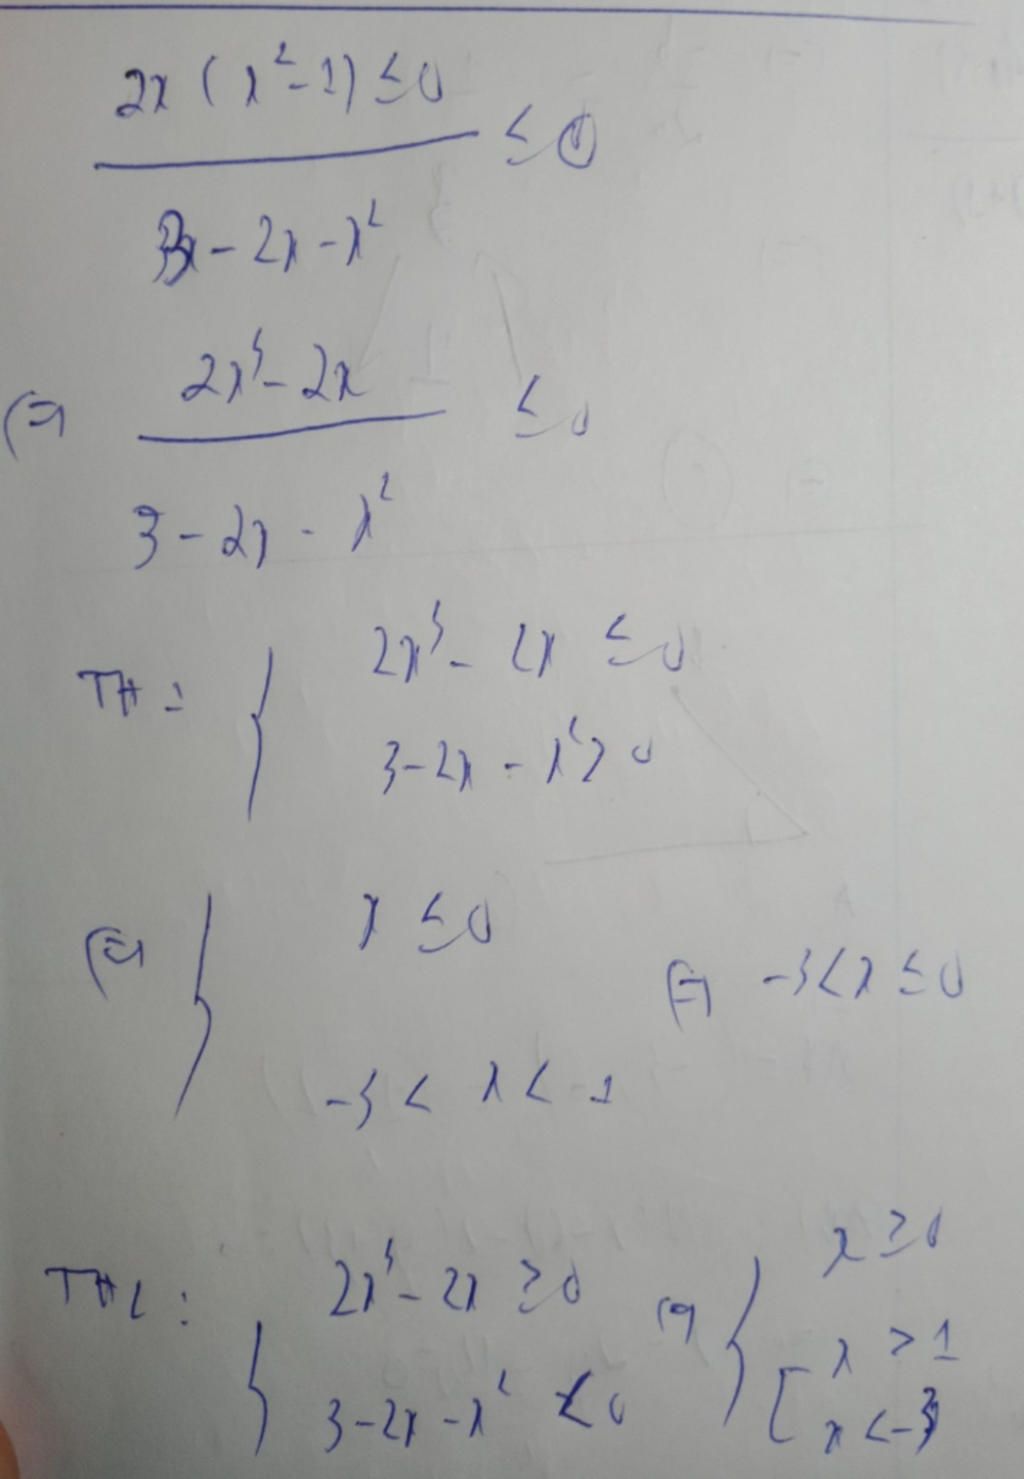 2x(x²-1) ≤ 0
≤ 0
3 - 2x - x²
⇔ 2x³ - 2x ≤ 0
3 - 2x - x²
TH: { 2x³ - 2x ≤ 0
3 - 2x - x² > 0
⇔ { x ≤ 0
-3 < x < 1
⇔ -3 < x ≤ 0
TH2: { 2x³ - 2x ≥ 0
3 - 2x - x² < 0
⇔ { x ≥ 0
[ x > 1
x < -3